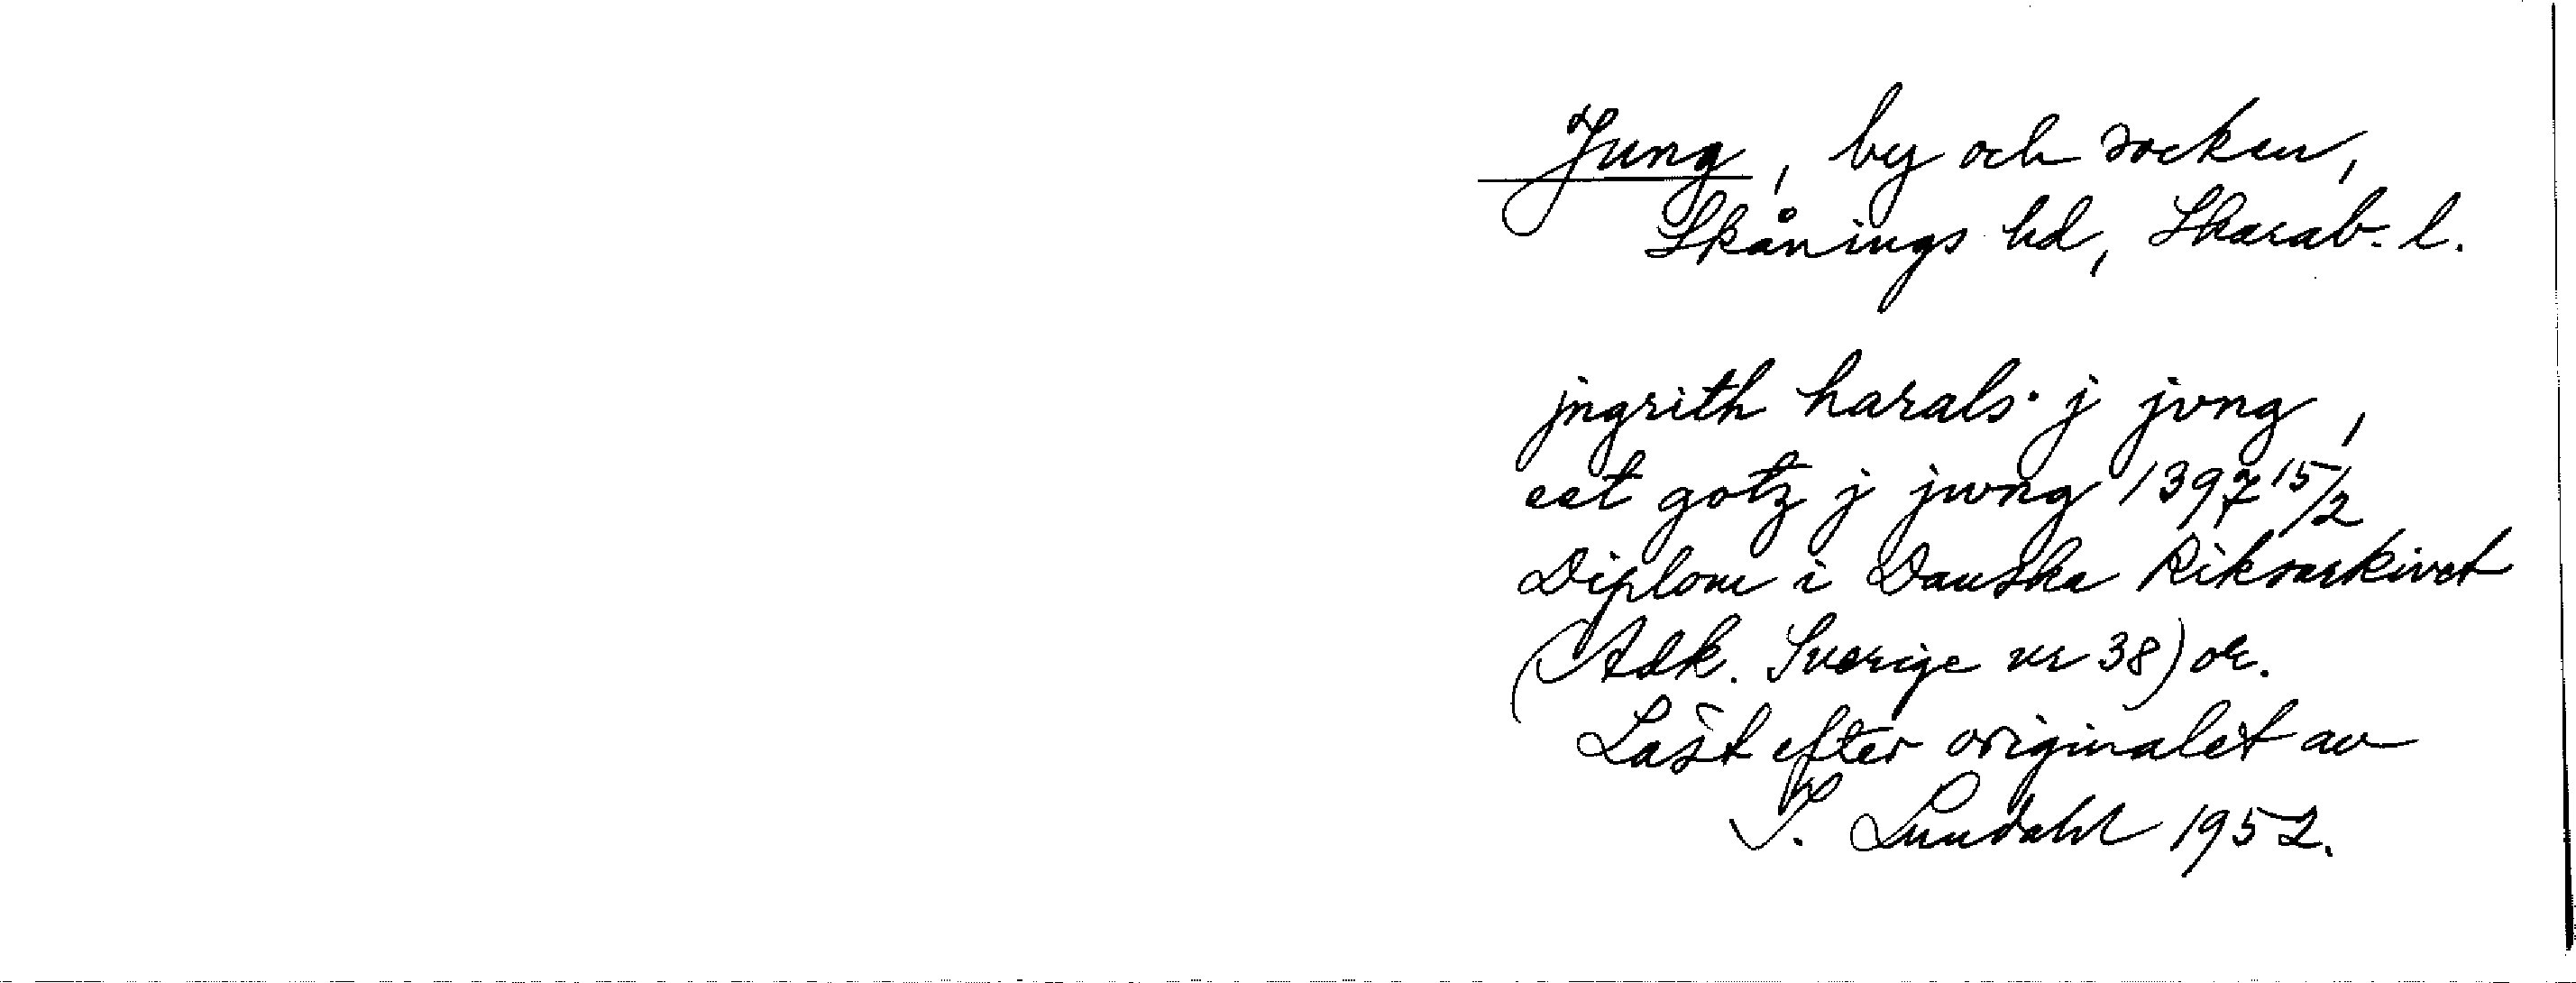 Jung, by och socken,
Skånings hd, Skarab. l.
jngrith harals. j jvng,
eet gotz j jwng 1397 15/2
Diplom i Danska Riksarkivet
(Adk. Sverige nr 38) or.
Läst efter originalet av
I. Lundahl 1952.